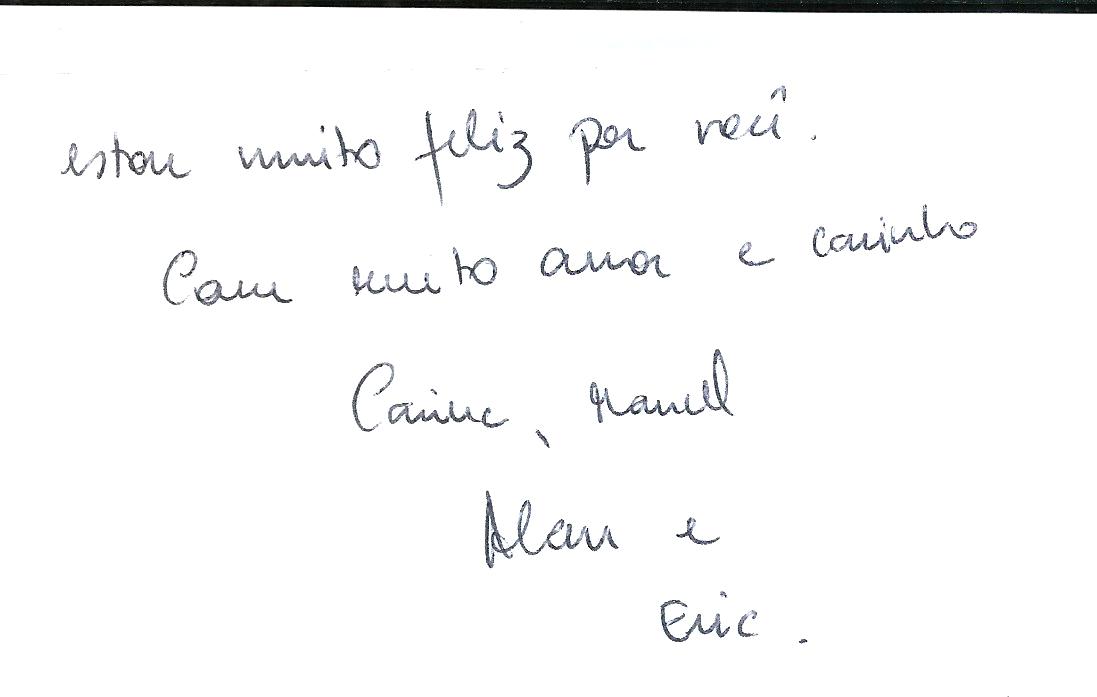 estou muito feliz por você.
Com muito amor e carinho
Carine, Manoel
Alan e
Eric.